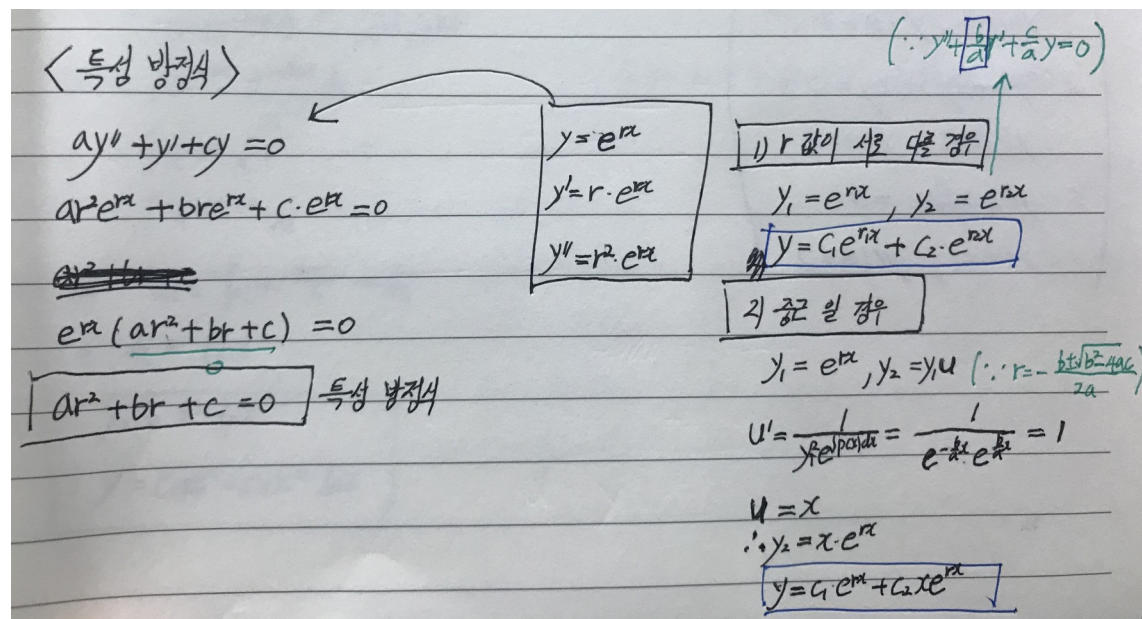 <특성 방정식>
ay'' + y' + cy = 0
ar²e^{rx} + bre^{rx} + c·e^{rx} = 0
e^{rx} (ar² + br + c) = 0
0
ar² + br + c = 0 특성 방정식
y = e^{rx}
y' = r·e^{rx}
y'' = r²·e^{rx}
(∵ y'' + b/a y' + c/a y = 0)
1) r 값이 서로 다를 경우
y₁ = e^{r₁x} , y₂ = e^{r₂x}
y = C₁e^{r₁x} + C₂·e^{r₂x}
2) 중근 일 경우
y₁ = e^{rx} , y₂ = y₁u (∵ r = - b±√b²-4ac / 2a)
u' = 1 / y₁²e^{∫p(x)dx} = 1 / e^{-b/a x}·e^{b/a x} = 1
u = x
∴ y₂ = x·e^{rx}
y = C₁·e^{rx} + C₂xe^{rx}